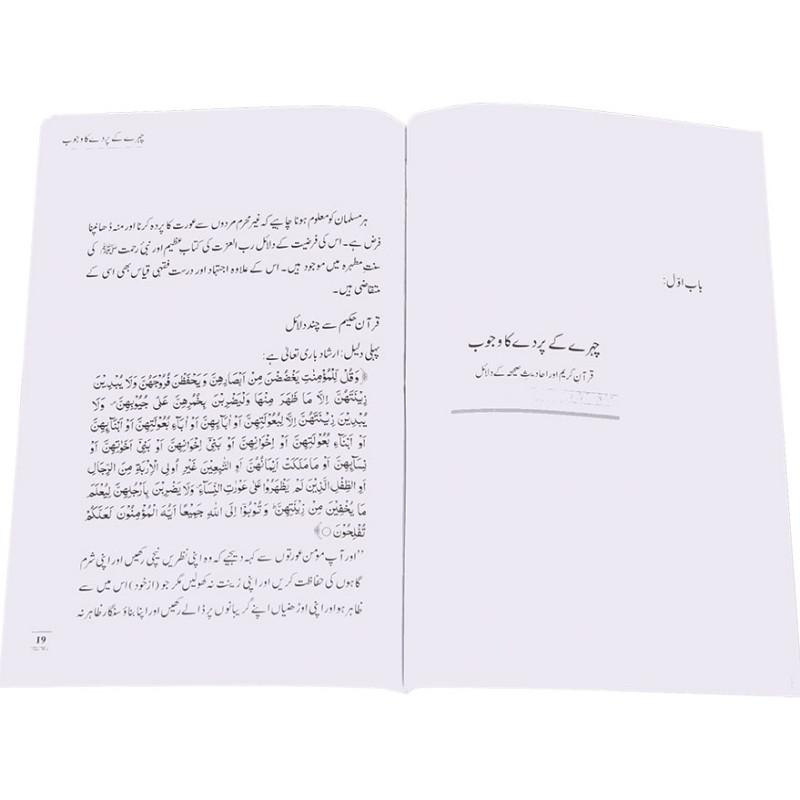 باب اوّل:
چہرے کے پردے کا وجوب
قرآن کریم اور احادیثِ صحیحہ کے دلائل
چہرے کے پردے کا وجوب
ہر مسلمان کو معلوم ہونا چاہیے کہ غیر محرم مردوں سے عورت کا پردہ کرنا اور منہ ڈھانپنا
فرض ہے۔ اس کی فرضیت کے دلائل رب العزت کی کتابِ عظیم اور نبیٔ رحمت ﷺ کی
سنتِ مطہرہ میں موجود ہیں۔ اس کے علاوہ اجتہاد اور درست فقہی قیاس بھی اسی کے
متقاضی ہیں۔
قرآن حکیم سے چند دلائل
پہلی دلیل: ارشاد باری تعالیٰ ہے:
﴿ وَقُلْ لِّلْمُؤْمِنٰتِ يَغْضُضْنَ مِنْ اَبْصَارِهِنَّ وَيَحْفَظْنَ فُرُوْجَهُنَّ وَلَا يُبْدِيْنَ
زِيْنَتَهُنَّ اِلَّا مَا ظَهَرَ مِنْهَا وَلْيَضْرِبْنَ بِخُمُرِهِنَّ عَلٰى جُيُوْبِهِنَّ ۪ وَلَا
يُبْدِيْنَ زِيْنَتَهُنَّ اِلَّا لِبُعُوْلَتِهِنَّ اَوْ اٰبَآىِٕهِنَّ اَوْ اٰبَآءِ بُعُوْلَتِهِنَّ اَوْ اَبْنَآىِٕهِنَّ
اَوْ اَبْنَآءِ بُعُوْلَتِهِنَّ اَوْ اِخْوَانِهِنَّ اَوْ بَنِيْٓ اِخْوَانِهِنَّ اَوْ بَنِيْٓ اَخَوٰتِهِنَّ اَوْ
نِسَآىِٕهِنَّ اَوْ مَا مَلَكَتْ اَيْمَانُهُنَّ اَوِ التّٰبِعِيْنَ غَيْرِ اُولِي الْاِرْبَةِ مِنَ الرِّجَالِ
اَوِ الطِّفْلِ الَّذِيْنَ لَمْ يَظْهَرُوْا عَلٰى عَوْرٰتِ النِّسَآءِ ۪ وَلَا يَضْرِبْنَ بِاَرْجُلِهِنَّ لِيُعْلَمَ
مَا يُخْفِيْنَ مِنْ زِيْنَتِهِنَّ ؕ وَتُوْبُوْٓا اِلَى اللّٰهِ جَمِيْعًا اَيُّهَ الْمُؤْمِنُوْنَ لَعَلَّكُمْ
تُفْلِحُوْنَ ○ ﴾
”اور آپ مؤمن عورتوں سے کہہ دیجیے کہ وہ اپنی نظریں نیچی رکھیں اور اپنی شرم
گاہوں کی حفاظت کریں اور اپنی زینت نہ کھولیں مگر جو (از خود) اس میں سے
ظاہر ہو اور اپنی اوڑھنیاں اپنے گریبانوں پر ڈالے رکھیں اور اپنا بناؤ سنگار ظاہر نہ
19